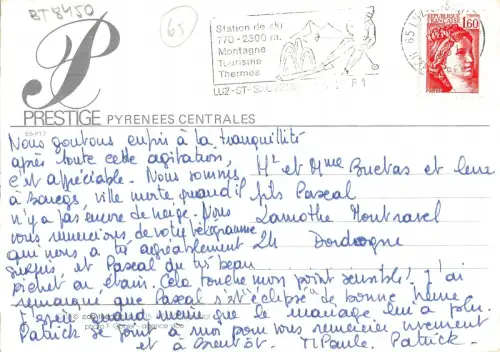 BT 8450
65
Station de ski
770 - 2500 m.
Montagne
Tourisme
Thermes
LUZ-ST-SAUVEUR
REPUBLIQUE FRANÇAISE
1,60
P
PRESTIGE PYRENEES CENTRALES
Nous goutons enfin à la tranquillité
après toute cette agitation,
c'est appréciable. Nous sommes
à Barèges, ville morte quand il
n'y a pas encore de neige. Nous
vous remercions de votre télégramme
qui nous a très agréablement
surpris et Pascal du très beau
pichet en étain. Cela touche mon point sensible! J'ai
remarqué que Pascal s'est éclipsé de bonne heure
J'espère quand même que le mariage lui a plu.
Patrick se joint à moi pour vous remercier vivement
et à bientôt. M Paule. Patrick.
Mr et Mme Buetas et leur
fils Pascal
Lamothe Montravel
24 Dordogne